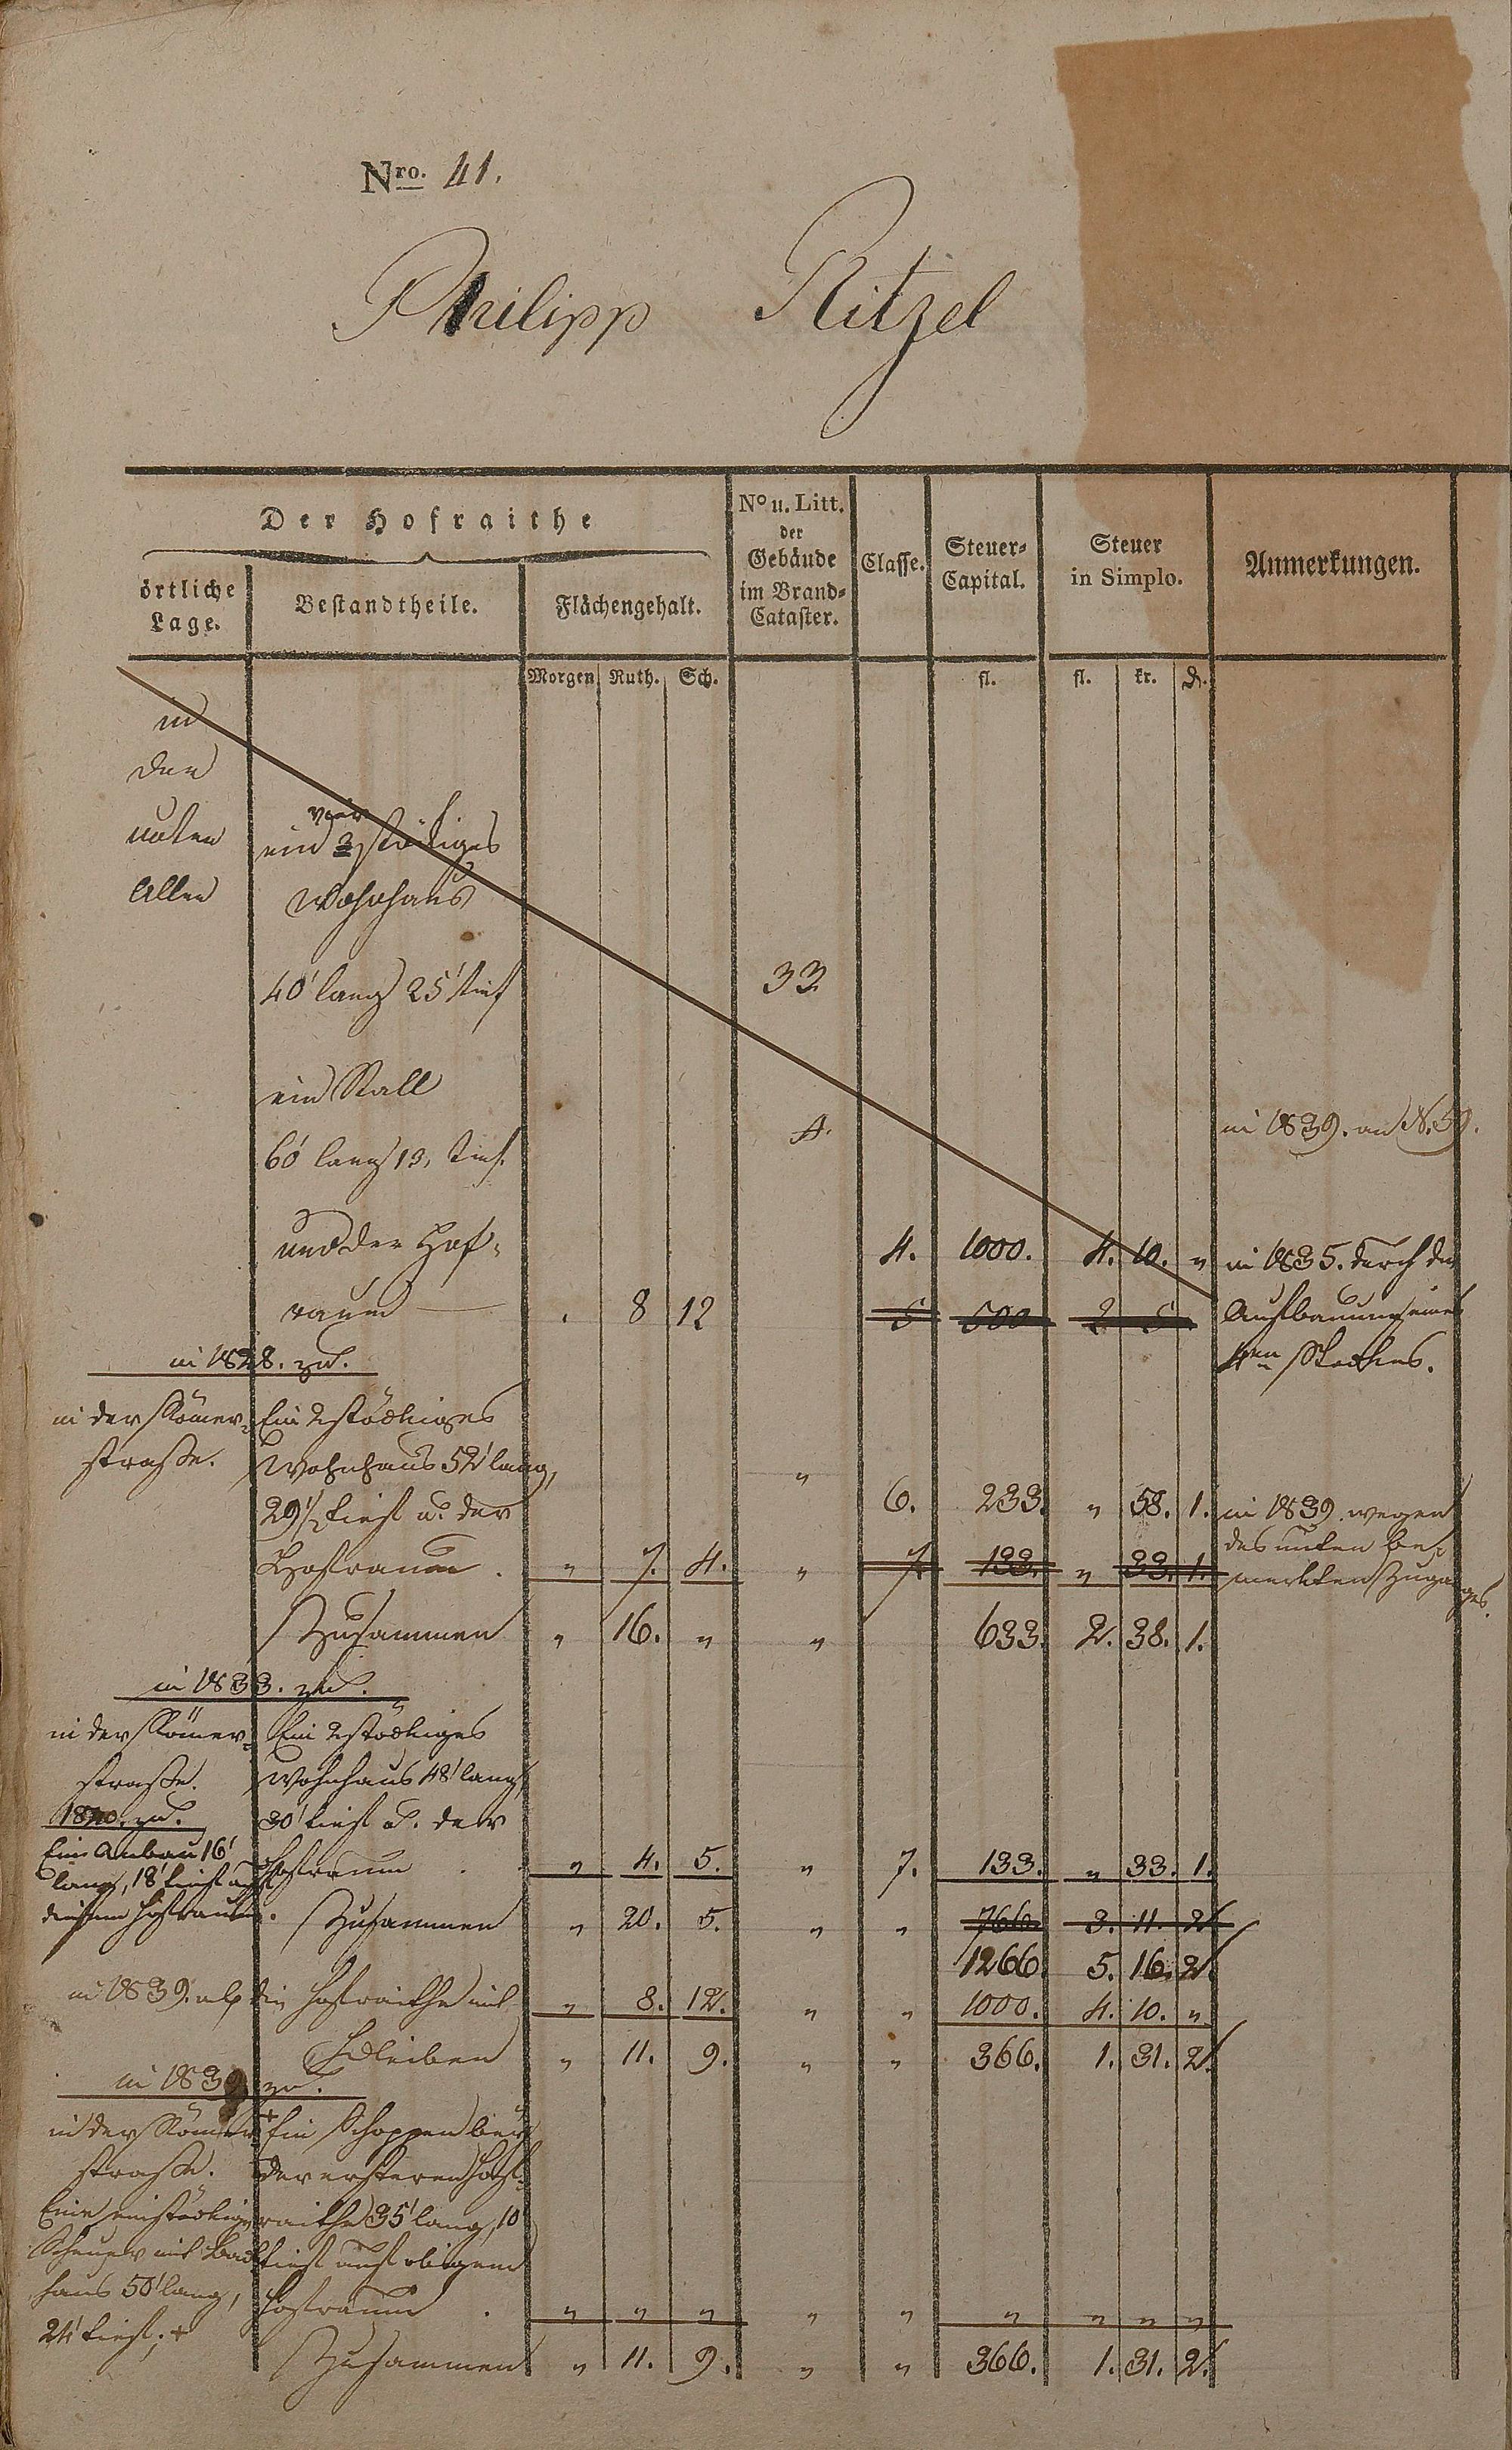 Nro. 41.
Philipp Ritzel
Der Hofraithe
örtliche Lage.
Bestandtheile.
Flächengehalt.
No u. Litt. der Gebäude im Brand-Cataster.
Classe.
Steuer-Capital.
Steuer in Simplo.
Anmerkungen.
Morgen Ruth. Sch. fl. fl. kr. d.
in
der
unten ein vier 3 stöckiges
Allee Wohnhaus
40' lang 25' tief 33
ein Stall
60' lang 13, tief. A. in 1839. an N. 59.
und der Hof-
4. 1000. 4. 10. " in 1835. durch die
raum . 8 12 5 500 2 5 Aufbauung eines
4ten Stockes.
in 1828. zu.
in der Römer- Ein 2stöckiges
straße. Wohnhaus 52' lang,
29' tief u. der 6. 233. " 58. 1. in 1839. wegen
des unten be-
Hofraum. " 7. 4. " 7. 133. " 33. 1. merkten Zuganges.
Zusammen " 16. " " 633. 2. 38. 1.
in 1833. zu.
in der Römer- Ein 2stöckiges
straße. Wohnhaus 48' lang,
1840. zu. 30' tief u. der
Ein Anbau 16'
lang, 18' tief auf Hofraum . " 4. 5. " 7. 133. " 33. 1.
diesem Hofraum. Zusammen " 20. 5. " " 766. 3. 11. 2.
1266. 5. 16. 2.
in 1839. ab die Hofraithe mit " 8. 12. " " 1000. 4. 10. "
Bleiben " 11. 9. " " 366. 1. 31. 2.
in 1839 zu.
in der Römer- + Ein Schoppen bei
straße. der ersteren Hof-
Eine einstöckige raithe 35' lang, 10'
Scheuer mit Back- tief auf obigem
haus 50' lang, Hofraum . " " " " " " " " "
24' tief; +
Zusammen " 11. 9. " " 366. 1. 31. 2.